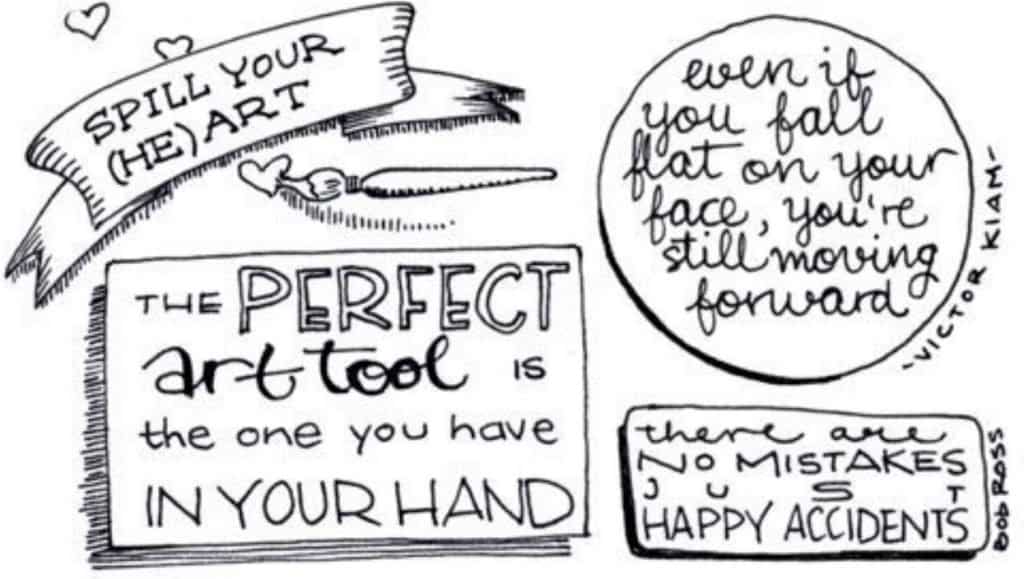 SPILL YOUR
(HE)ART
THE PERFECT
art tool IS
the one you have
IN YOUR HAND
even if
you fall
flat on your
face, you're
still moving
forward
-VICTOR KIAM-
there are
NO MISTAKES
JUST
HAPPY ACCIDENTS
BOB ROSS